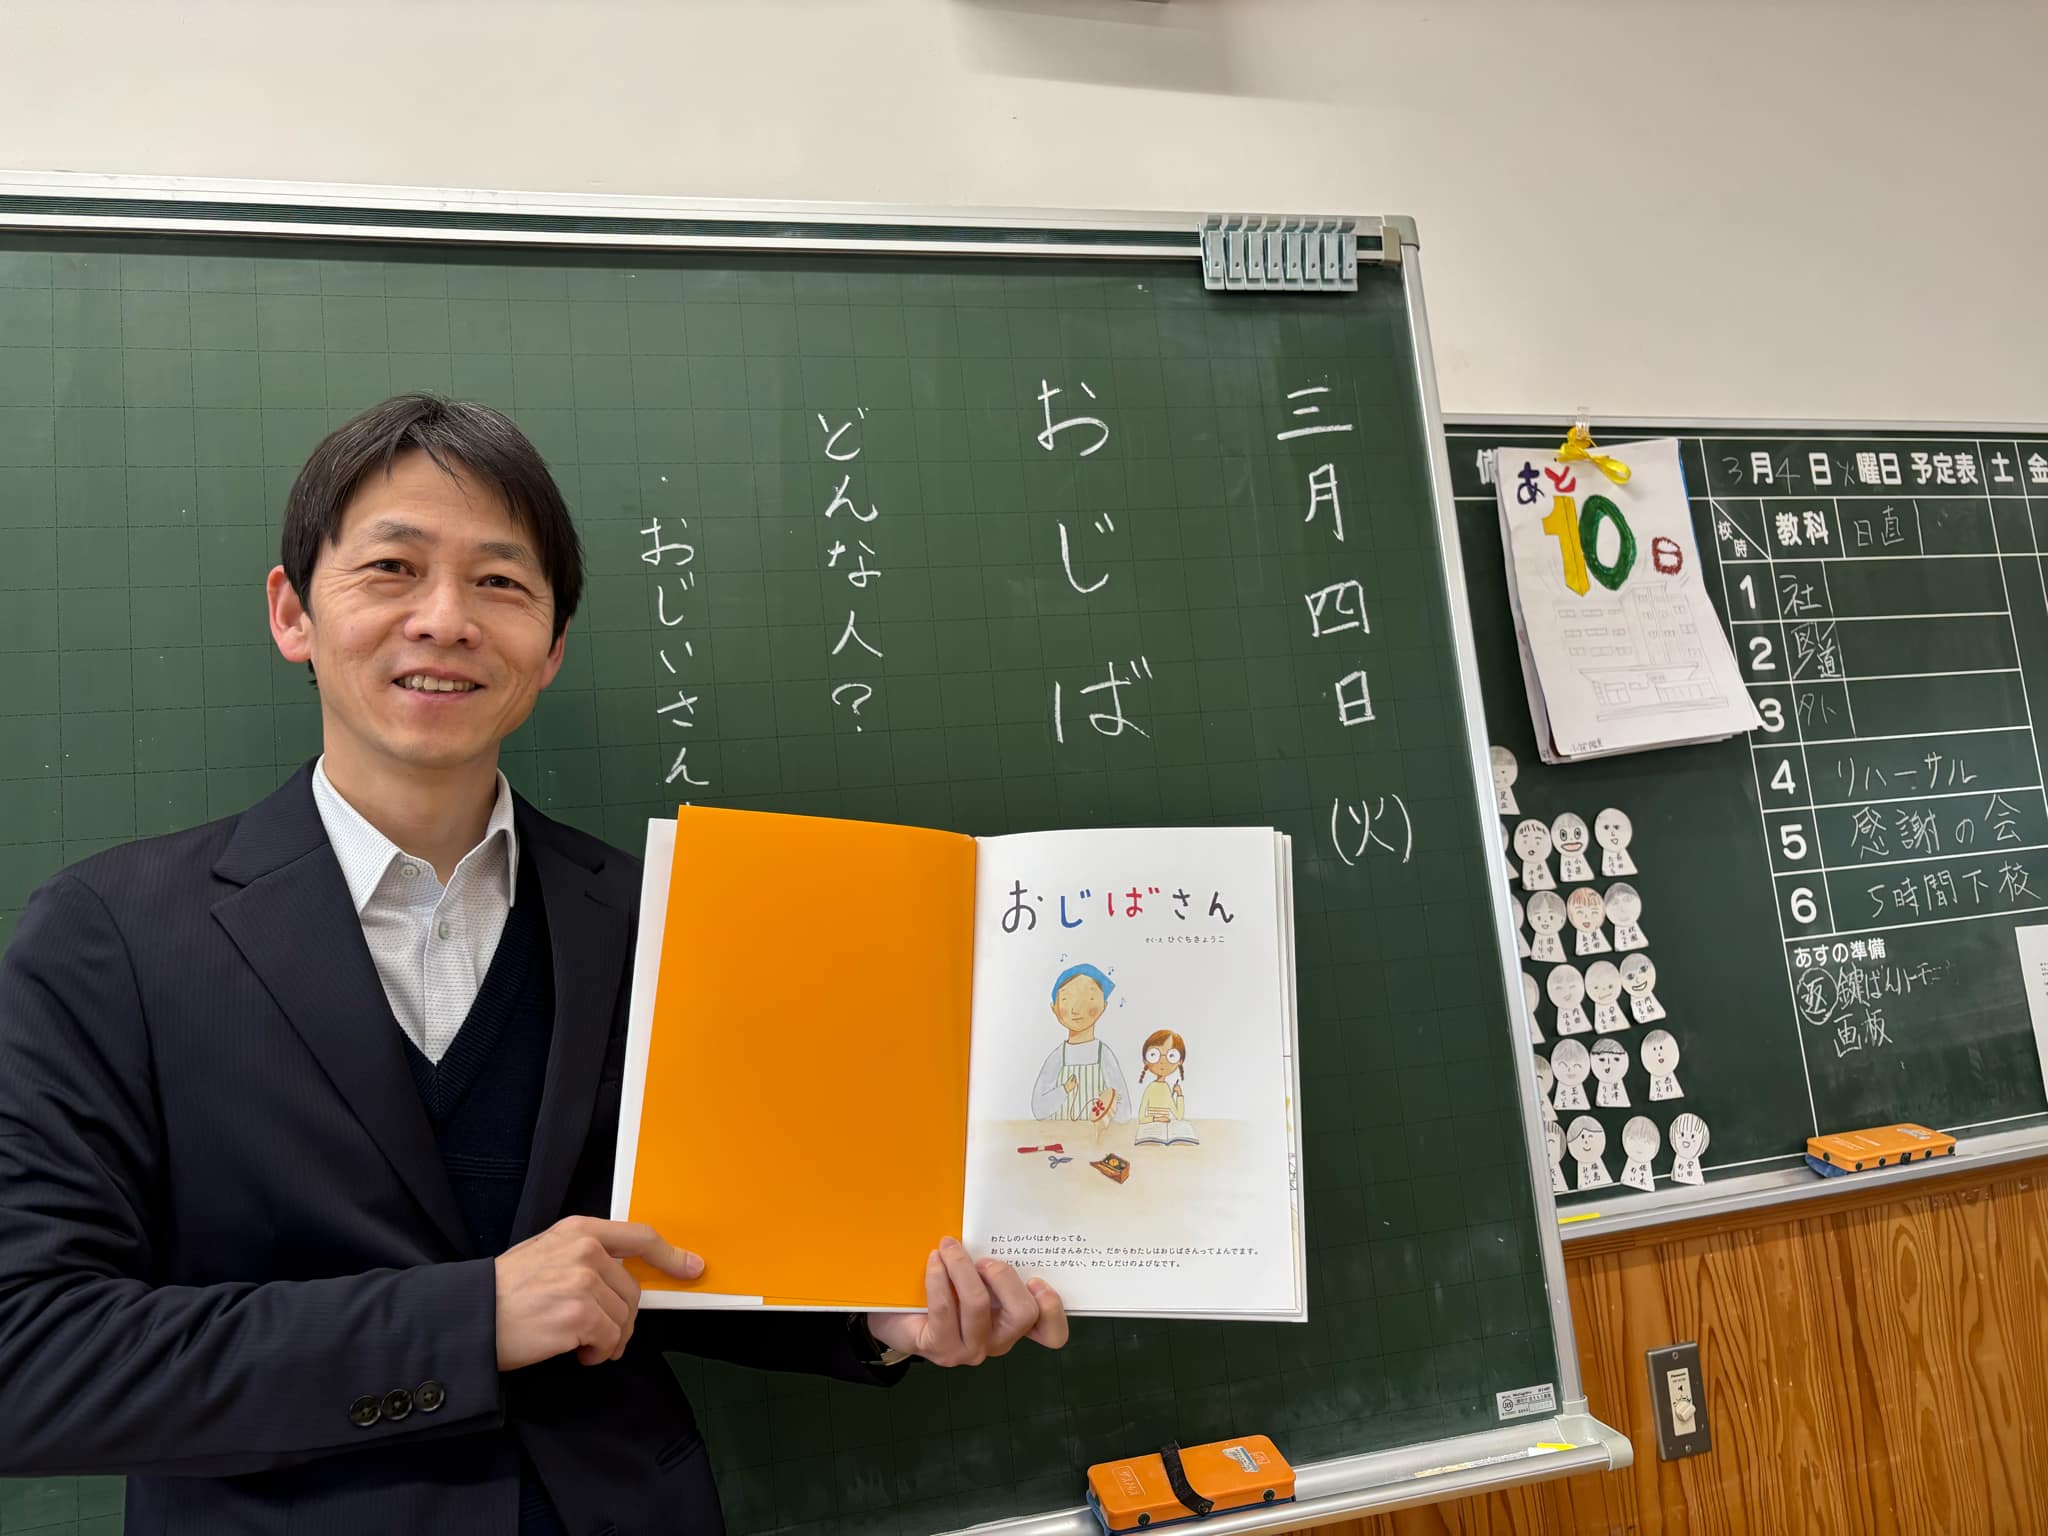 三月四日(火)
おじば
どんな人?
・おじいさん
おじばさん
さく・え ひぐちきょうこ
わたしのパパはかわってる。
おじさんなのにおばさんみたい。だからわたしはおじばさんってよんでます。
にもいったことがない、わたしだけのよびなです。
あと10日
3月4日火曜日 予定表 土 金
校時 教科 日直
1 社
2
3 外
4 リハーサル
5 感謝の会
6 5時間下校
あすの準備
返 鍵ばんハーモニー
画板